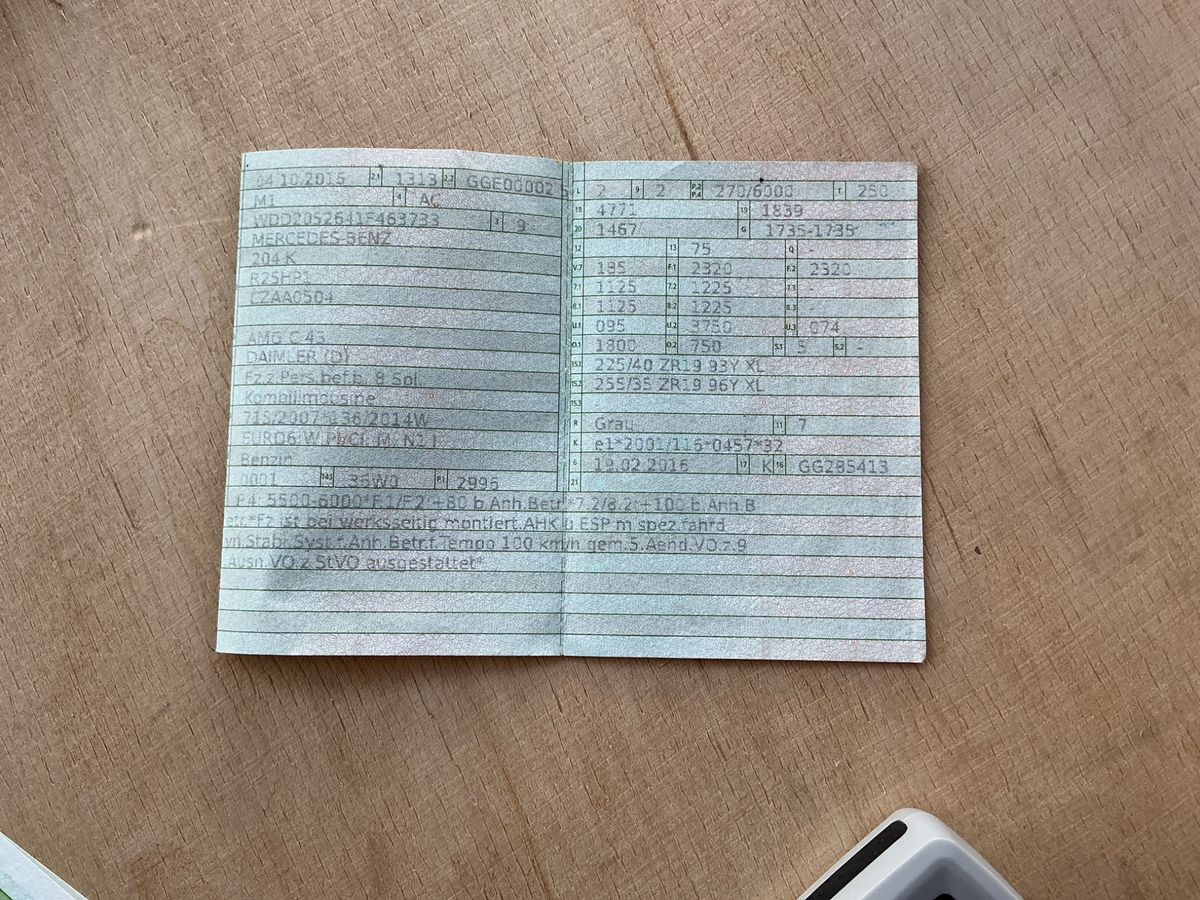 04.10.2016 2.1 1313 2.2 GGE00002 5
M1 4 AC
WDD2052641F463733 3 9
MERCEDES-BENZ
204 K
R2SHP1
CZAA0504
AMG C 43
DAIMLER (D)
Fz.z.Pers.bef.b. 8 Spl.
Kombilimousine
715/2007*136/2014W
EURO6;W;PI/CI; M, N1 I
Benzin
0001 14.1 36W0 P.1 2996
L 2 9 2 P.2 P.4 270/6000 T 250
18 4771 19 1839
20 1467 G 1735-1735
12 13 75 Q -
V.7 185 F.1 2320 F.2 2320
7.1 1125 7.2 1225 7.3 -
8.1 1125 8.2 1225 8.3 -
U.1 095 U.2 3750 U.3 074
O.1 1800 O.2 750 S.1 5 S.2 -
15.1 225/40 ZR19 93Y XL
15.2 255/35 ZR19 96Y XL
15.3
R Grau 11 7
K e1*2001/116*0457*32
6 19.02.2016 17 K 16 GG285413
21
P.4: 5500-6000*F.1/F.2:+80 b.Anh.Betr.*7.2/8.2:+100 b.Anh.B
etr.*Fz ist bei werksseitig montiert.AHK u ESP m.spez.fahrd
yn.Stabr.Syst.f.Anh.Betr.f.Tempo 100 km/h gem.5.Aend.VO.z.9
.Ausn.VO.z.StVO ausgestattet*